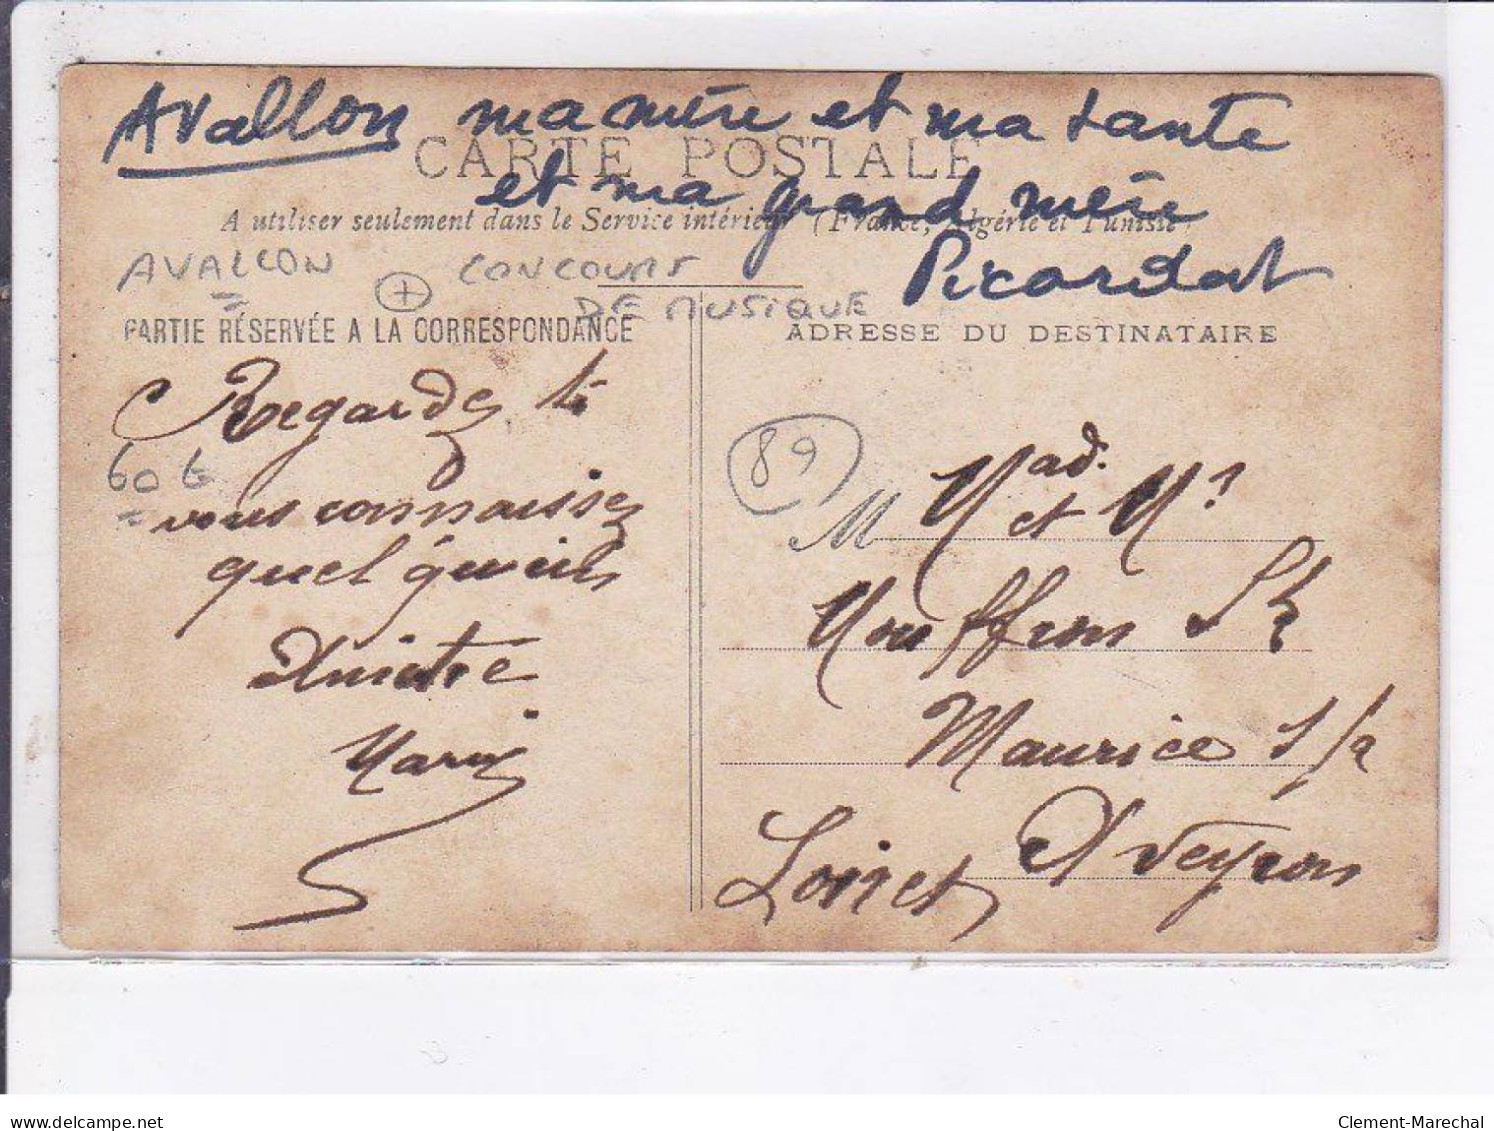 Avallon ma mère et ma tante
CARTE POSTALE
et ma grand mère
A utiliser seulement dans le Service intérieur (France, Algérie et Tunisie)
Picardat
AVALLON + CONCOURS
DE MUSIQUE
PARTIE RÉSERVÉE A LA CORRESPONDANCE
ADRESSE DU DESTINATAIRE
Regardez si
60 €
vous connaissez
quel qu'un
Marie
89
M Mad.
et Mr
Mouffron St
Maurice s/a
Aveyron
Loiret
delcampe.net
Clement-Marechal